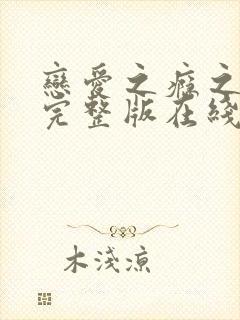 戀愛之癮之
完整版在綫
木淺凉